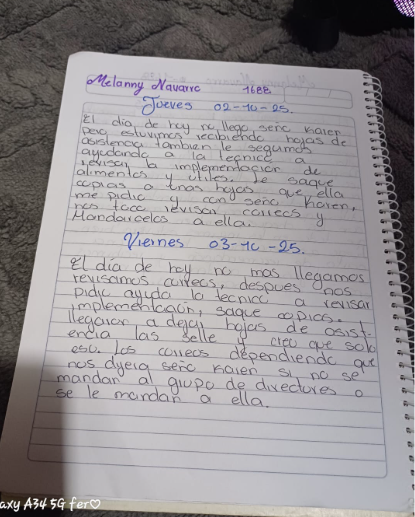 Melanny Navarro 1688
Jueves 02-10-25.
El día de hoy no llego señc Karen
pero estuvimos recibiendo hojas de
asistencia, tambien le seguimos
ayudando a la tecnica a
revisar la implementación de
alimentos y utiles. Le saque
copias a unas hojas que ella
me pidio y con señc Karen,
nos toco revisar correos y
Mandarcelos a ella.
Viernes 03-10-25.
El día de hoy no mas llegamos
revisamos correos, despues nos
pidio ayuda la tecnica a revisar
implementación, saque copias.
llegaron a dejar hojas de asist-
encia las selle y creo que solo
eso. Los correos dependiendo que
nos dijera señc Karen si no se
mandan al grupo de directores o
se le mandan a ella.
axy A34 5G fer♡